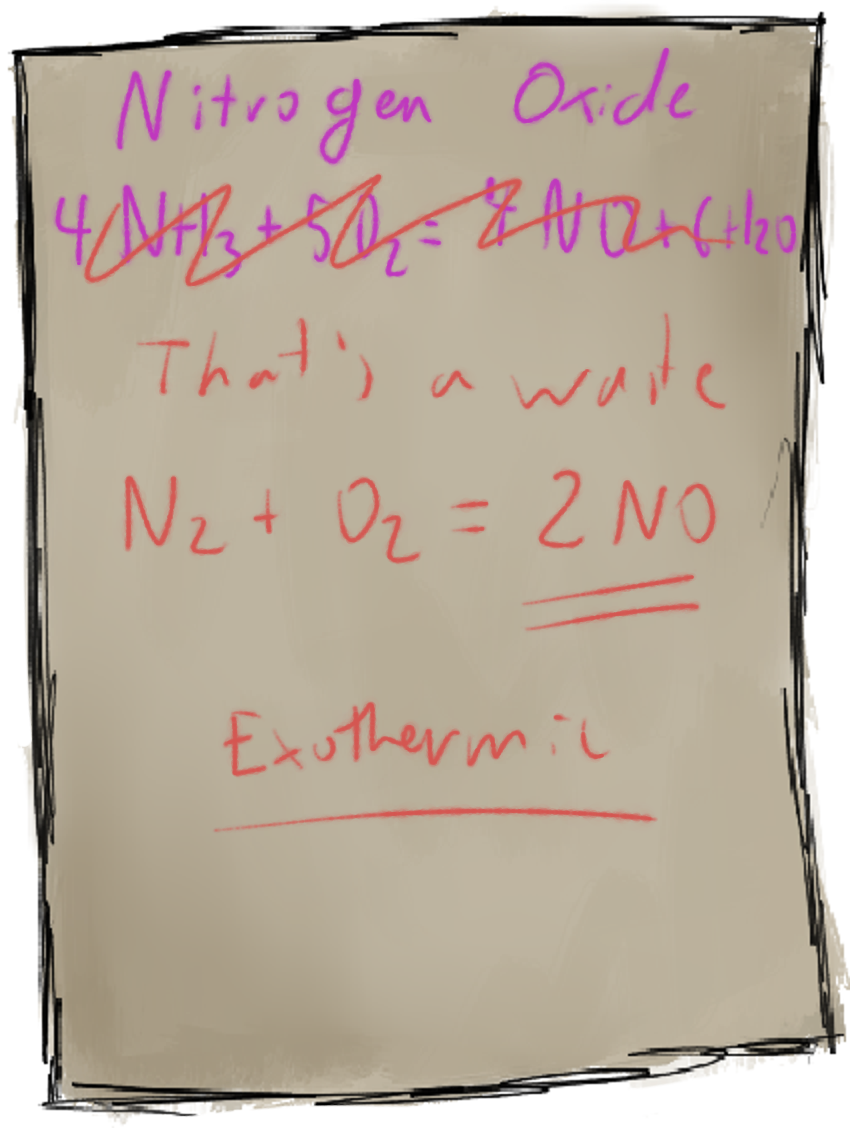 Nitrogen Oxide
4NH3 + 5O2 = 4NO + 6H2O
That's a waste
N2 + O2 = 2NO
Exothermic